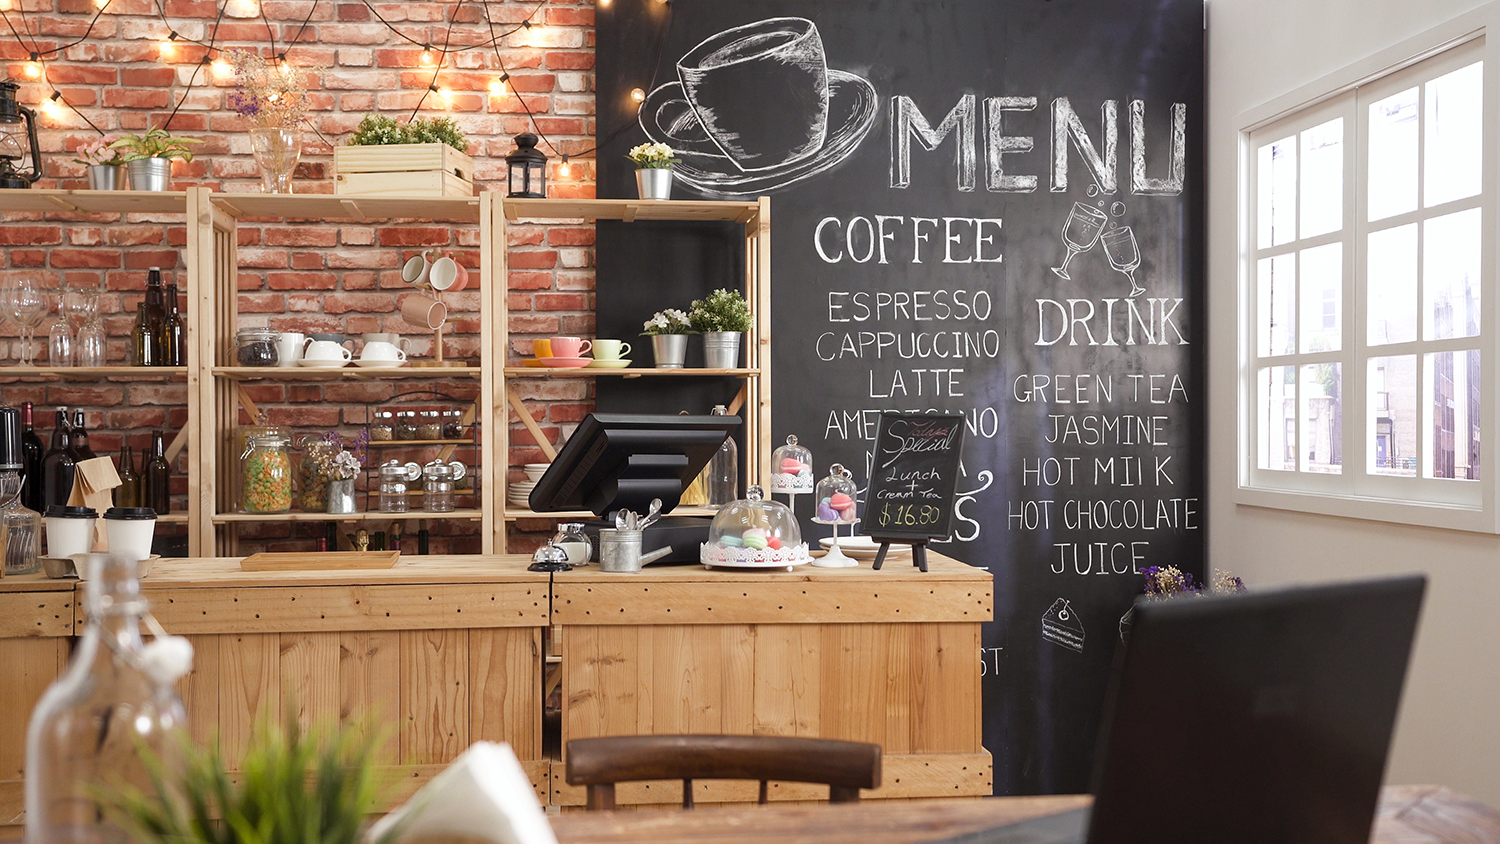 MENU
COFFEE
ESPRESSO
CAPPUCCINO
LATTE
DRINK
GREEN TEA
JASMINE
HOT MILK
HOT CHOCOLATE
JUICE
Special
Lunch
+
Cream Tea
$16.80